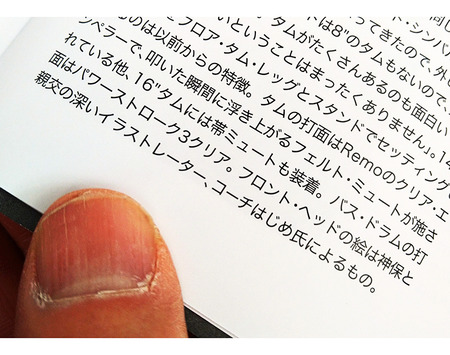 同
ト・シンバ
ってきたので、外
トは8"のタムもないので、
タムがたくさんあるのも面白い
いということはまったくありません」。14
フロア・タム・レッグとスタンドでセッティング
のは以前からの特徴。タムの打面はRemoのクリア・エ
ンペラーで、叩いた瞬間に浮き上がるフェルト・ミュートが施さ
れている他、16"タムには帯ミュートも装着。バス・ドラムの打
面はパワーストローク3クリア。フロント・ヘッドの絵は神保と
親交の深いイラストレーター、コーチはじめ氏によるもの。